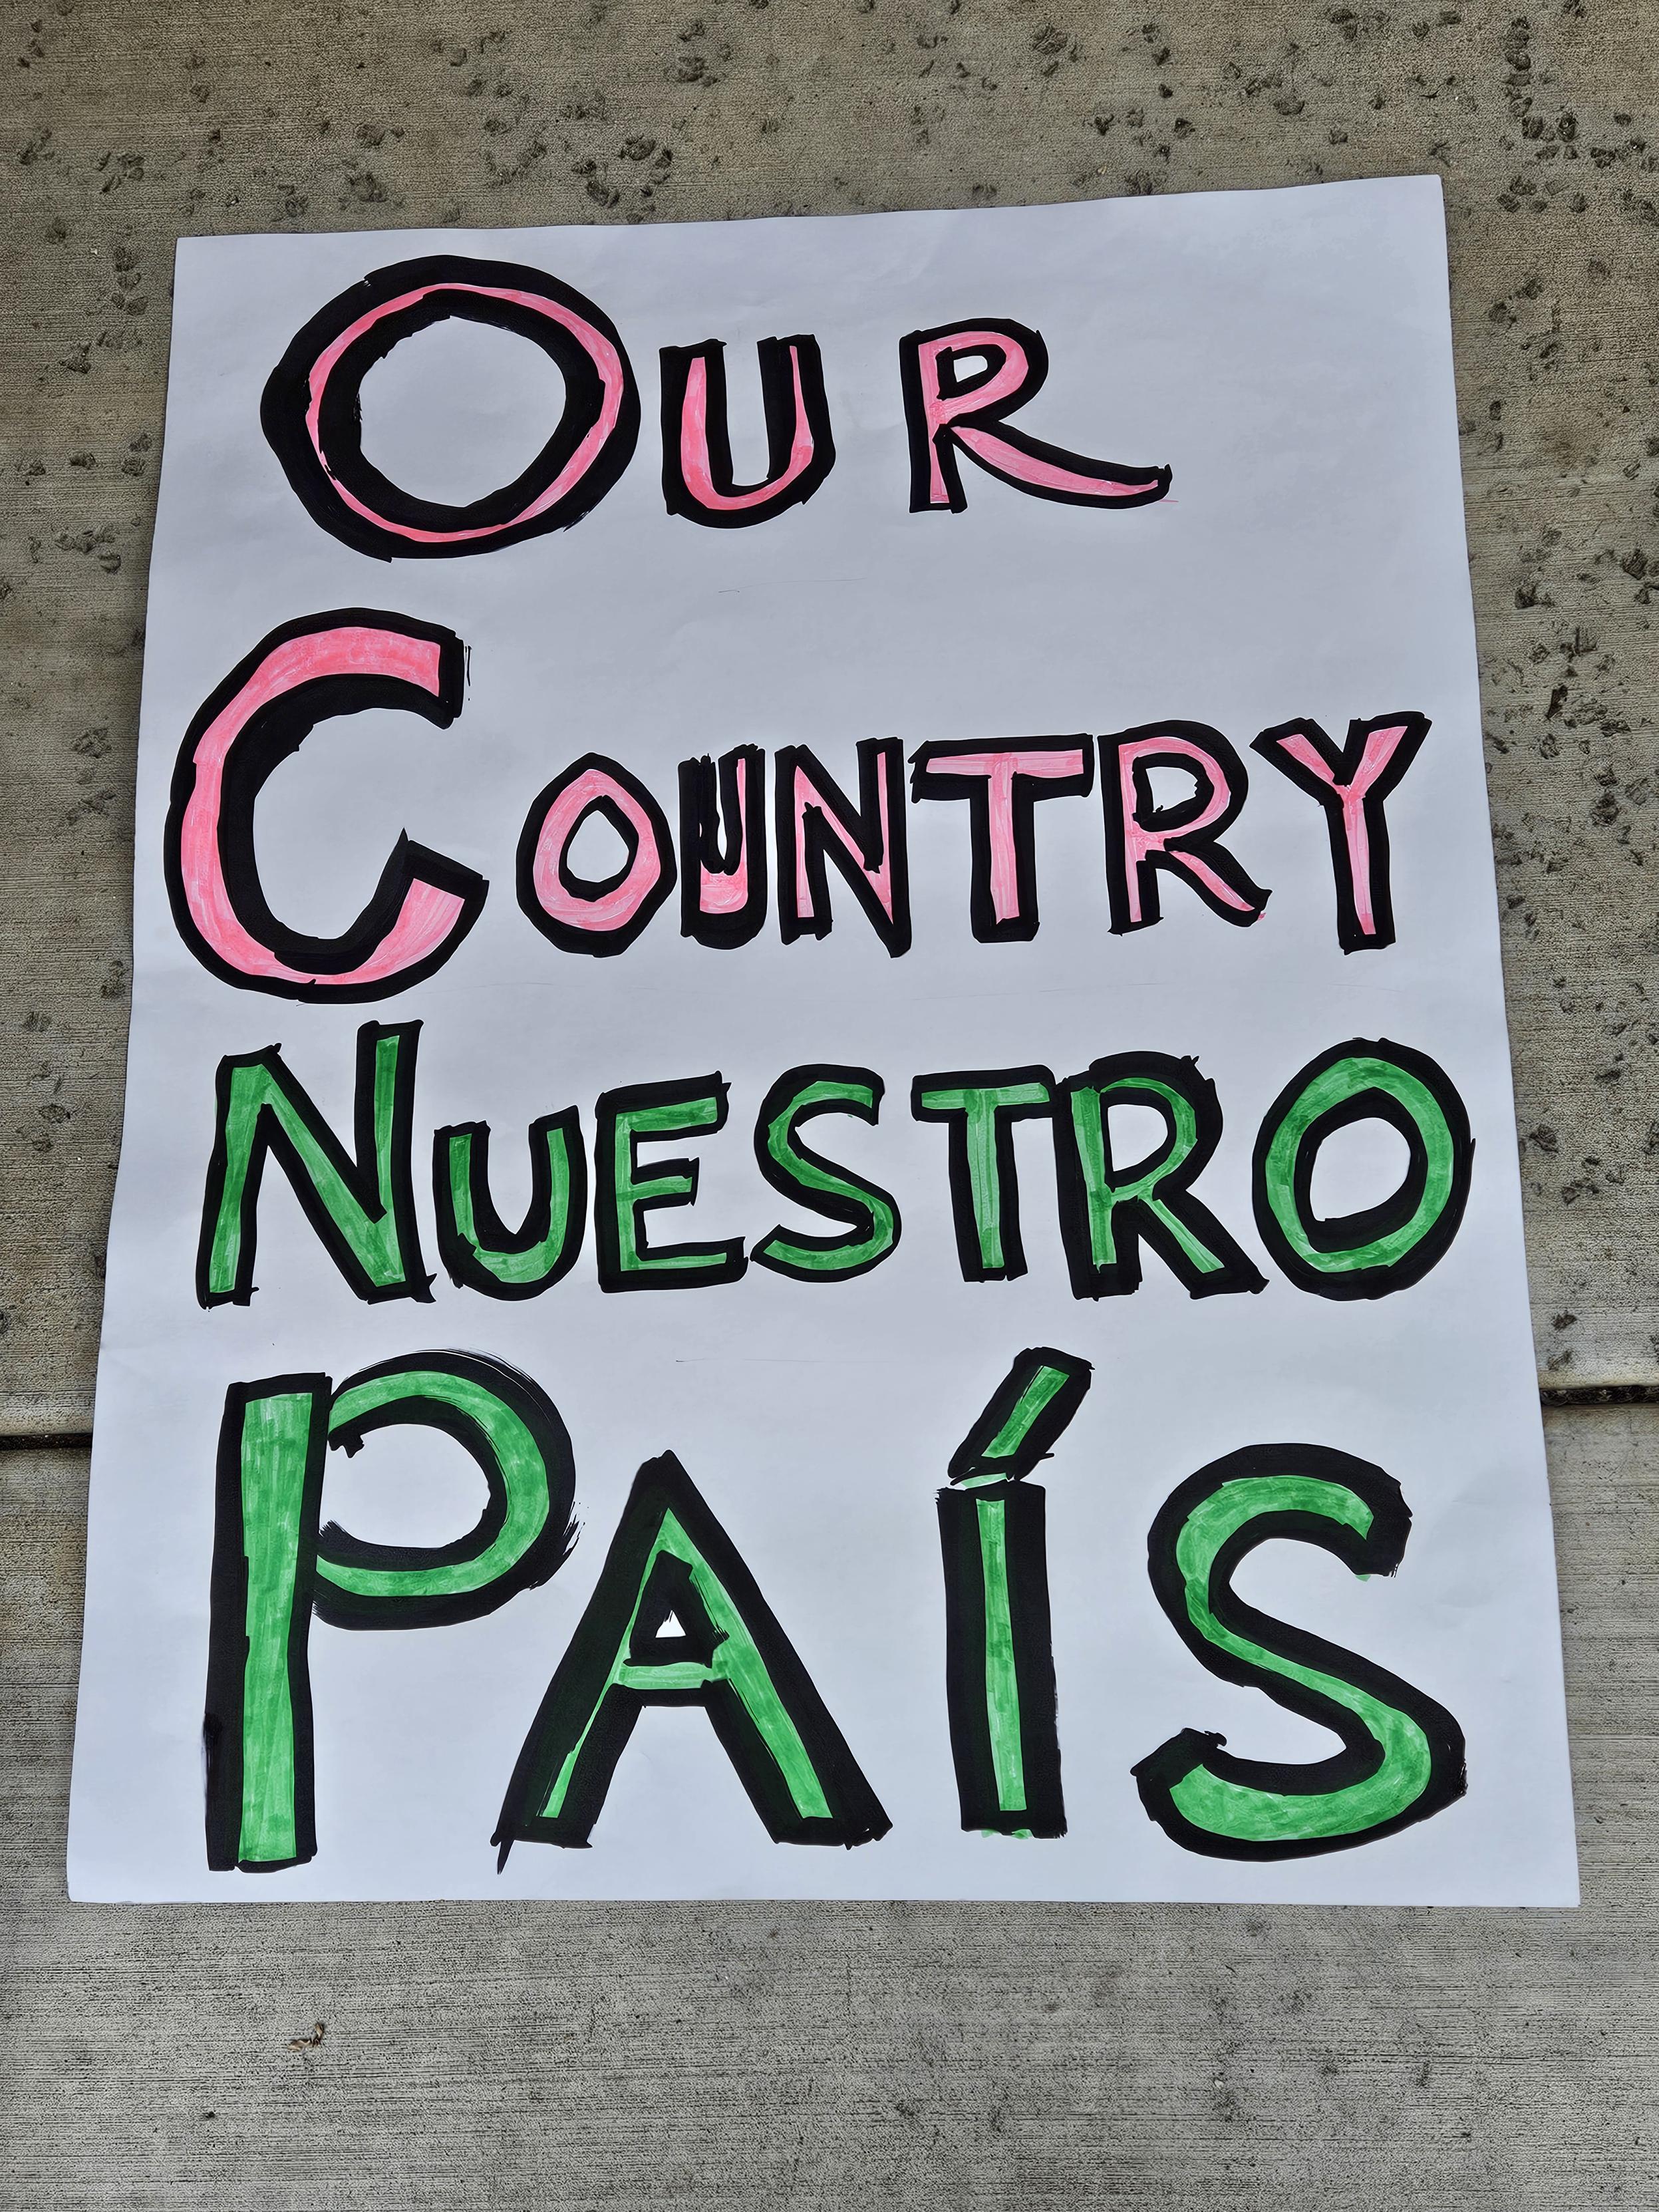 OUR
COUNTRY
NUESTRO
PAÍS